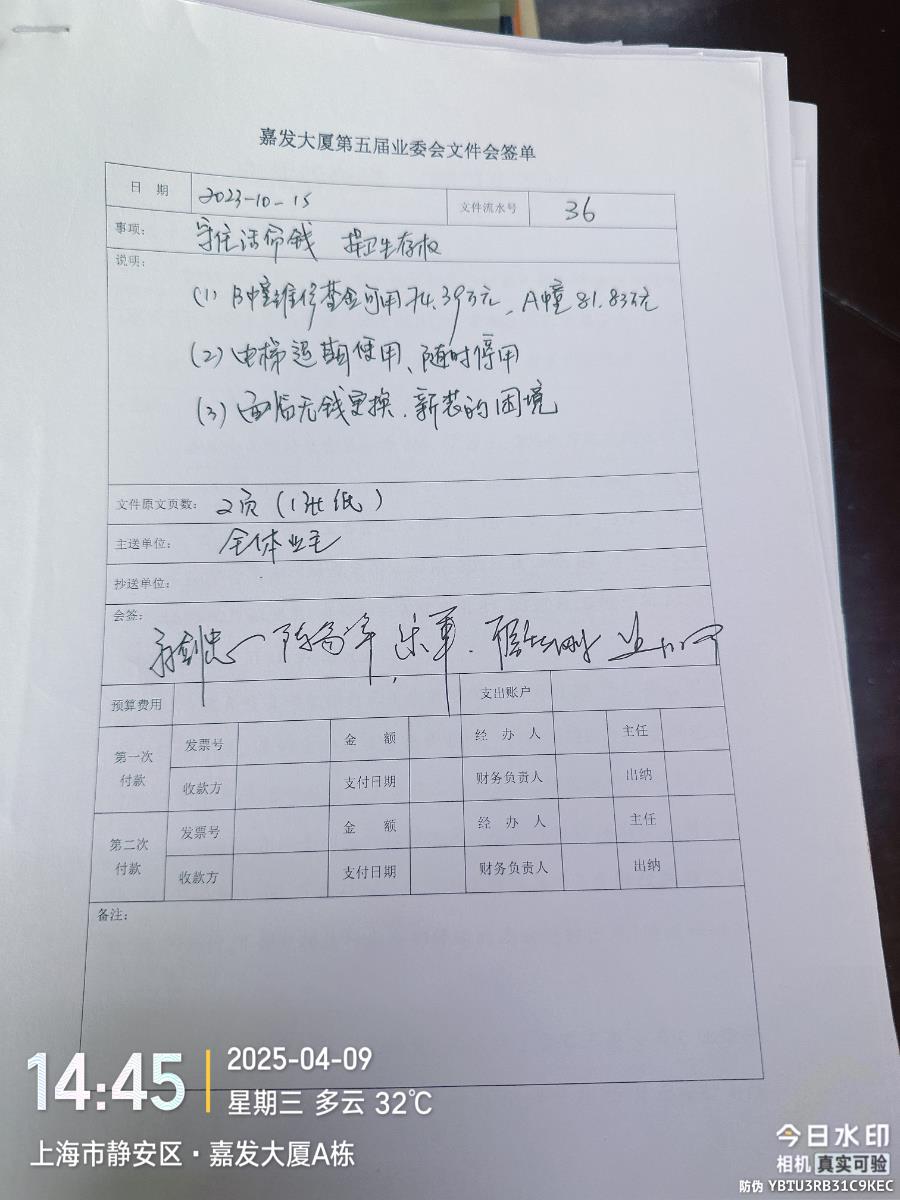 嘉发大厦第五届业委会文件会签单
日 期 2023-10-15 文件流水号 36
事项: 守住活命钱 捍卫生存权
说明:
(1) B幢维修基金可用74.39万元、A幢81.83万元
(2) 电梯超期使用、随时停用
(3) 面临无钱更换、新装的困境
文件原文页数: 2页(1张纸)
主送单位: 全体业主
抄送单位:
会签:
预算费用 支出账户
第一次付款 发票号 金 额 经 办 人 主任
收款方 支付日期 财务负责人 出纳
第二次付款 发票号 金 额 经 办 人 主任
收款方 支付日期 财务负责人 出纳
备注:
14:45 2025-04-09
星期三 多云 32℃
上海市静安区·嘉发大厦A栋
今日水印
相机 真实可验
防伪 YBTU3RB31C9KEC